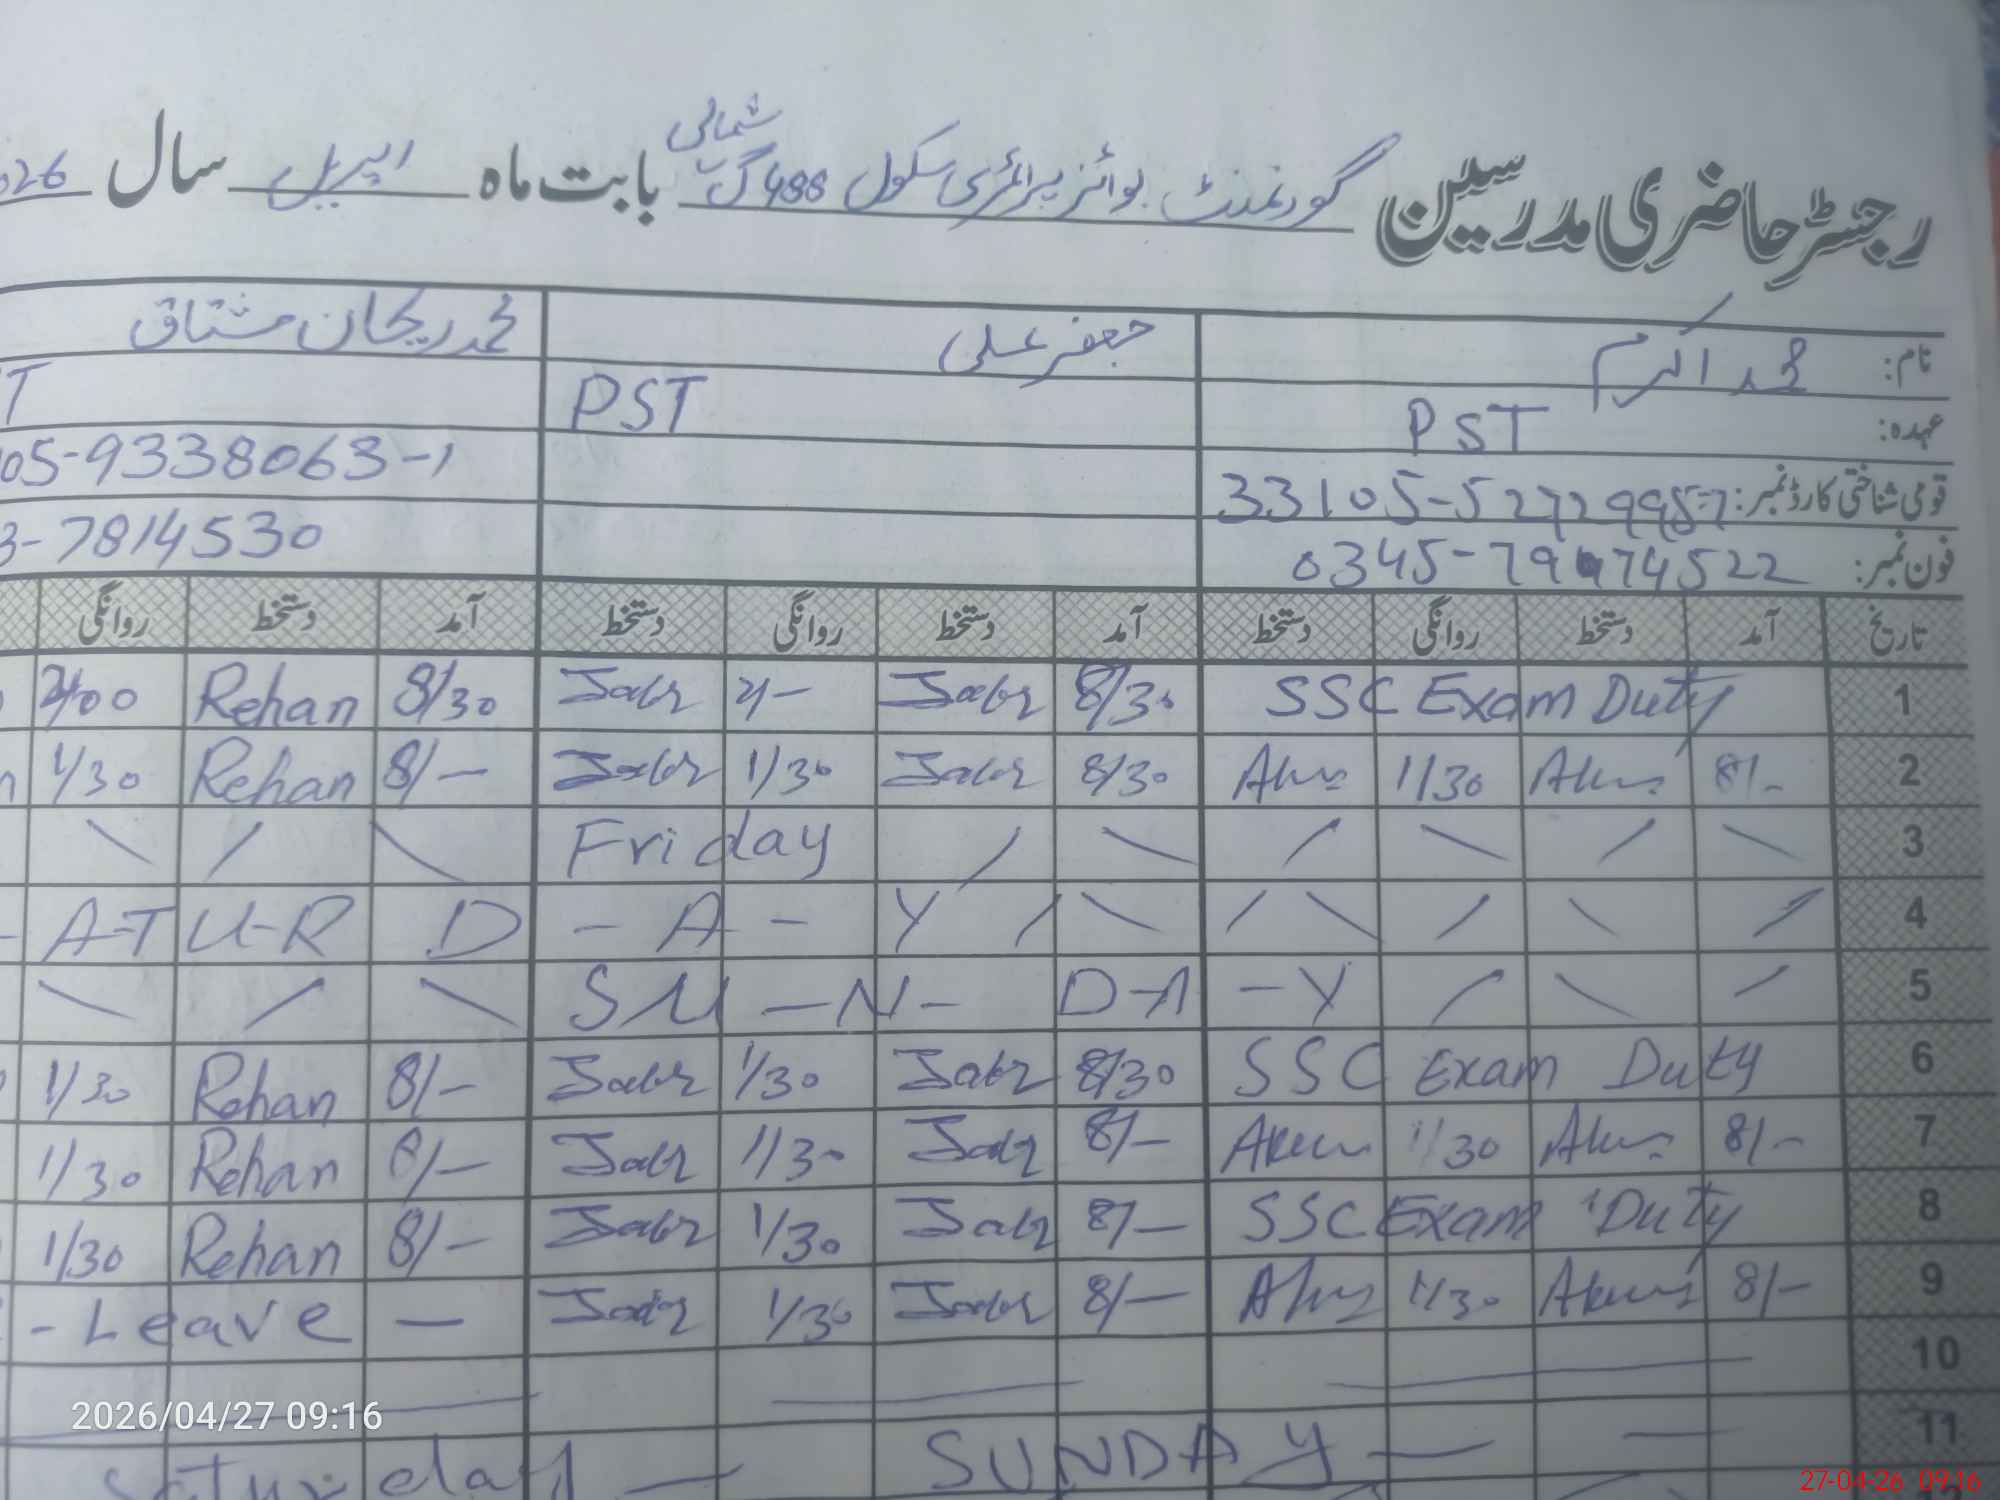 رجسٹر حاضری مدرسین گورنمنٹ بوائز پرائمری سکول 488 گ ب شمالی بابت ماہ اپریل سال 026
نام: محمد اکرم جعفر علی محمد ریحان مشتاق
عہدہ: PST PST T
قومی شناختی کارڈ نمبر: 33105-5272995-7 05-9338063-1
فون نمبر: 3-7814530
تاریخ آمد دستخط روانگی دستخط آمد دستخط روانگی دستخط آمد دستخط روانگی
1 SSC Exam Duty 8/30 2/- 8/30 Rehan 2/00
2 8/- 1/30 8/30 1/30 8/- Rehan 1/30
3 Friday
4 A-T U-R D - A - Y
5 SU - N - D-A - Y
6 SSC Exam Duty 8/30 1/30 8/- Rehan 1/30
7 8/- 1/30 8/- 1/30 8/- Rehan 1/30
8 SSC Exam Duty 8/- 1/30 8/- Rehan 1/30
9 8/- 1/30 8/- 1/30 - Leave -
10
11 Saturday -
SUNDAY -
2026/04/27 09:16
27-04-26 09:16